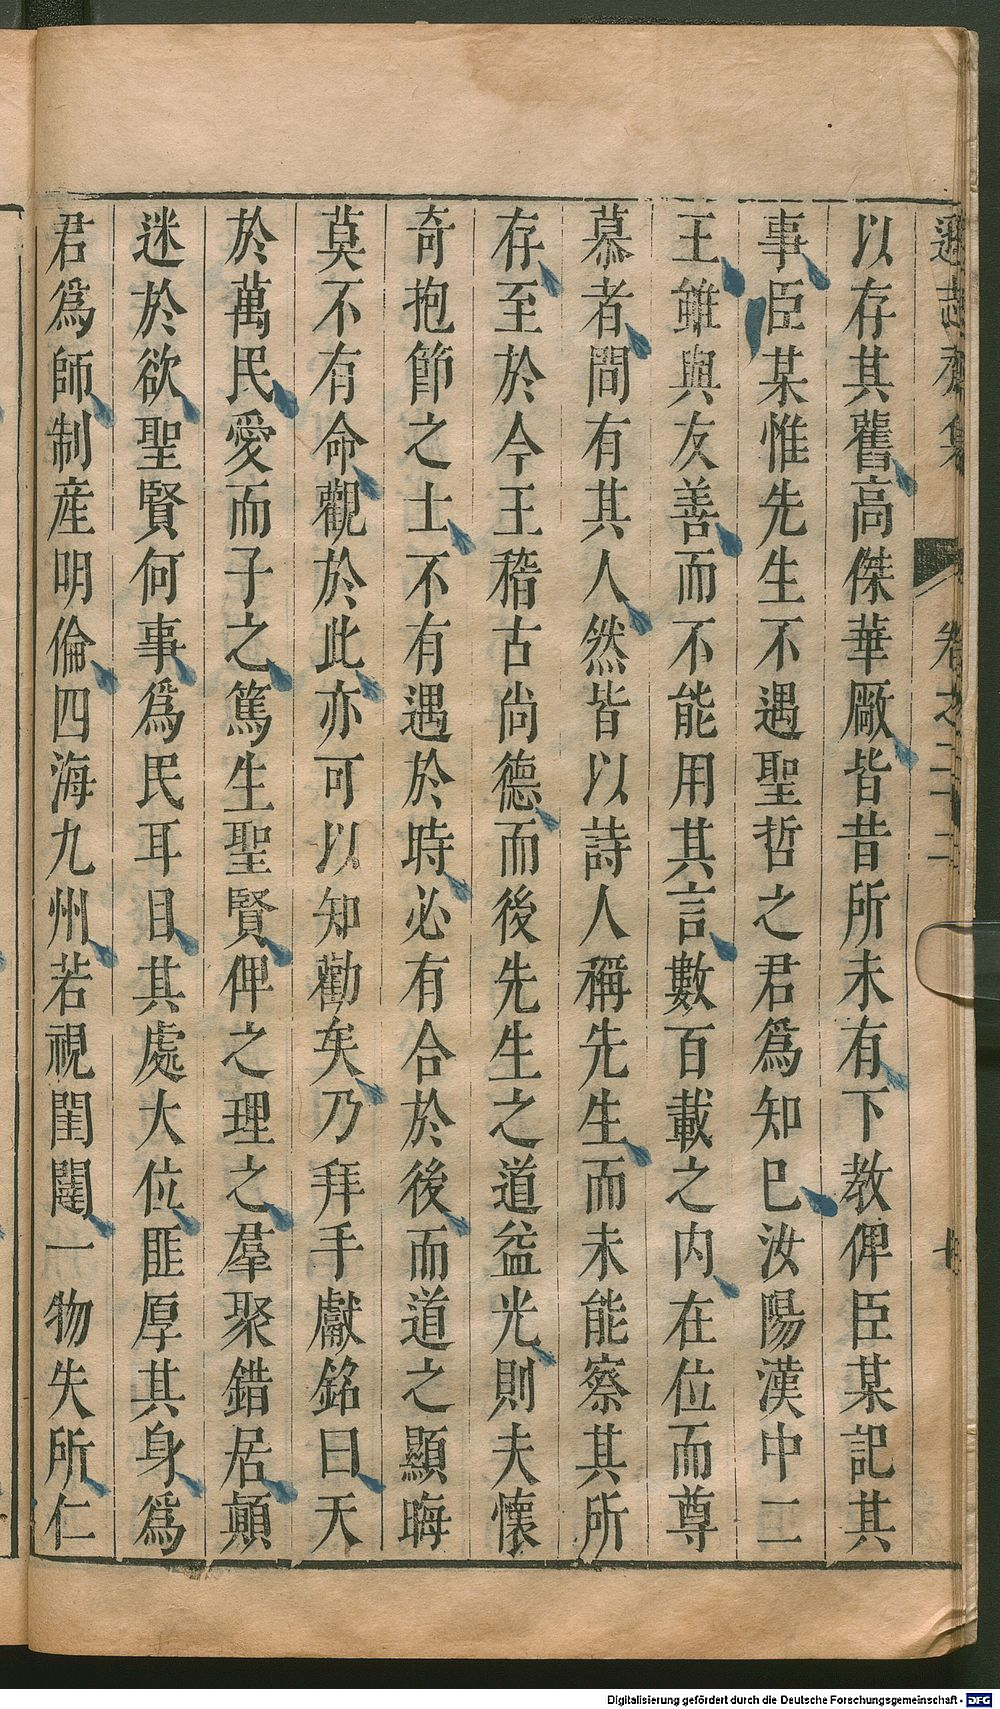 遜志齋集 卷之二十二
以存其舊高傑華厰皆昔所未有下教俾臣某記其
事臣某惟先生不遇聖哲之君爲知巳汝陽漢中二
王雖與友善而不能用其言數百載之內在位而尊
慕者間有其人然皆以詩人稱先生而未能察其所
存至於今王稽古尚德而後先生之道益光則夫懐
奇抱節之士不有遇於時必有合於後而道之顯晦
莫不有命觀於此亦可以知勸矣乃拜手獻銘曰天
於萬民愛而子之篤生聖賢俾之理之羣聚錯居顛
迷於欲聖賢何事爲民耳目其處大位匪厚其身爲
君爲師制産明倫四海九州若視閨闥一物失所仁
Digitalisierung gefördert durch die Deutsche Forschungsgemeinschaft - DFG